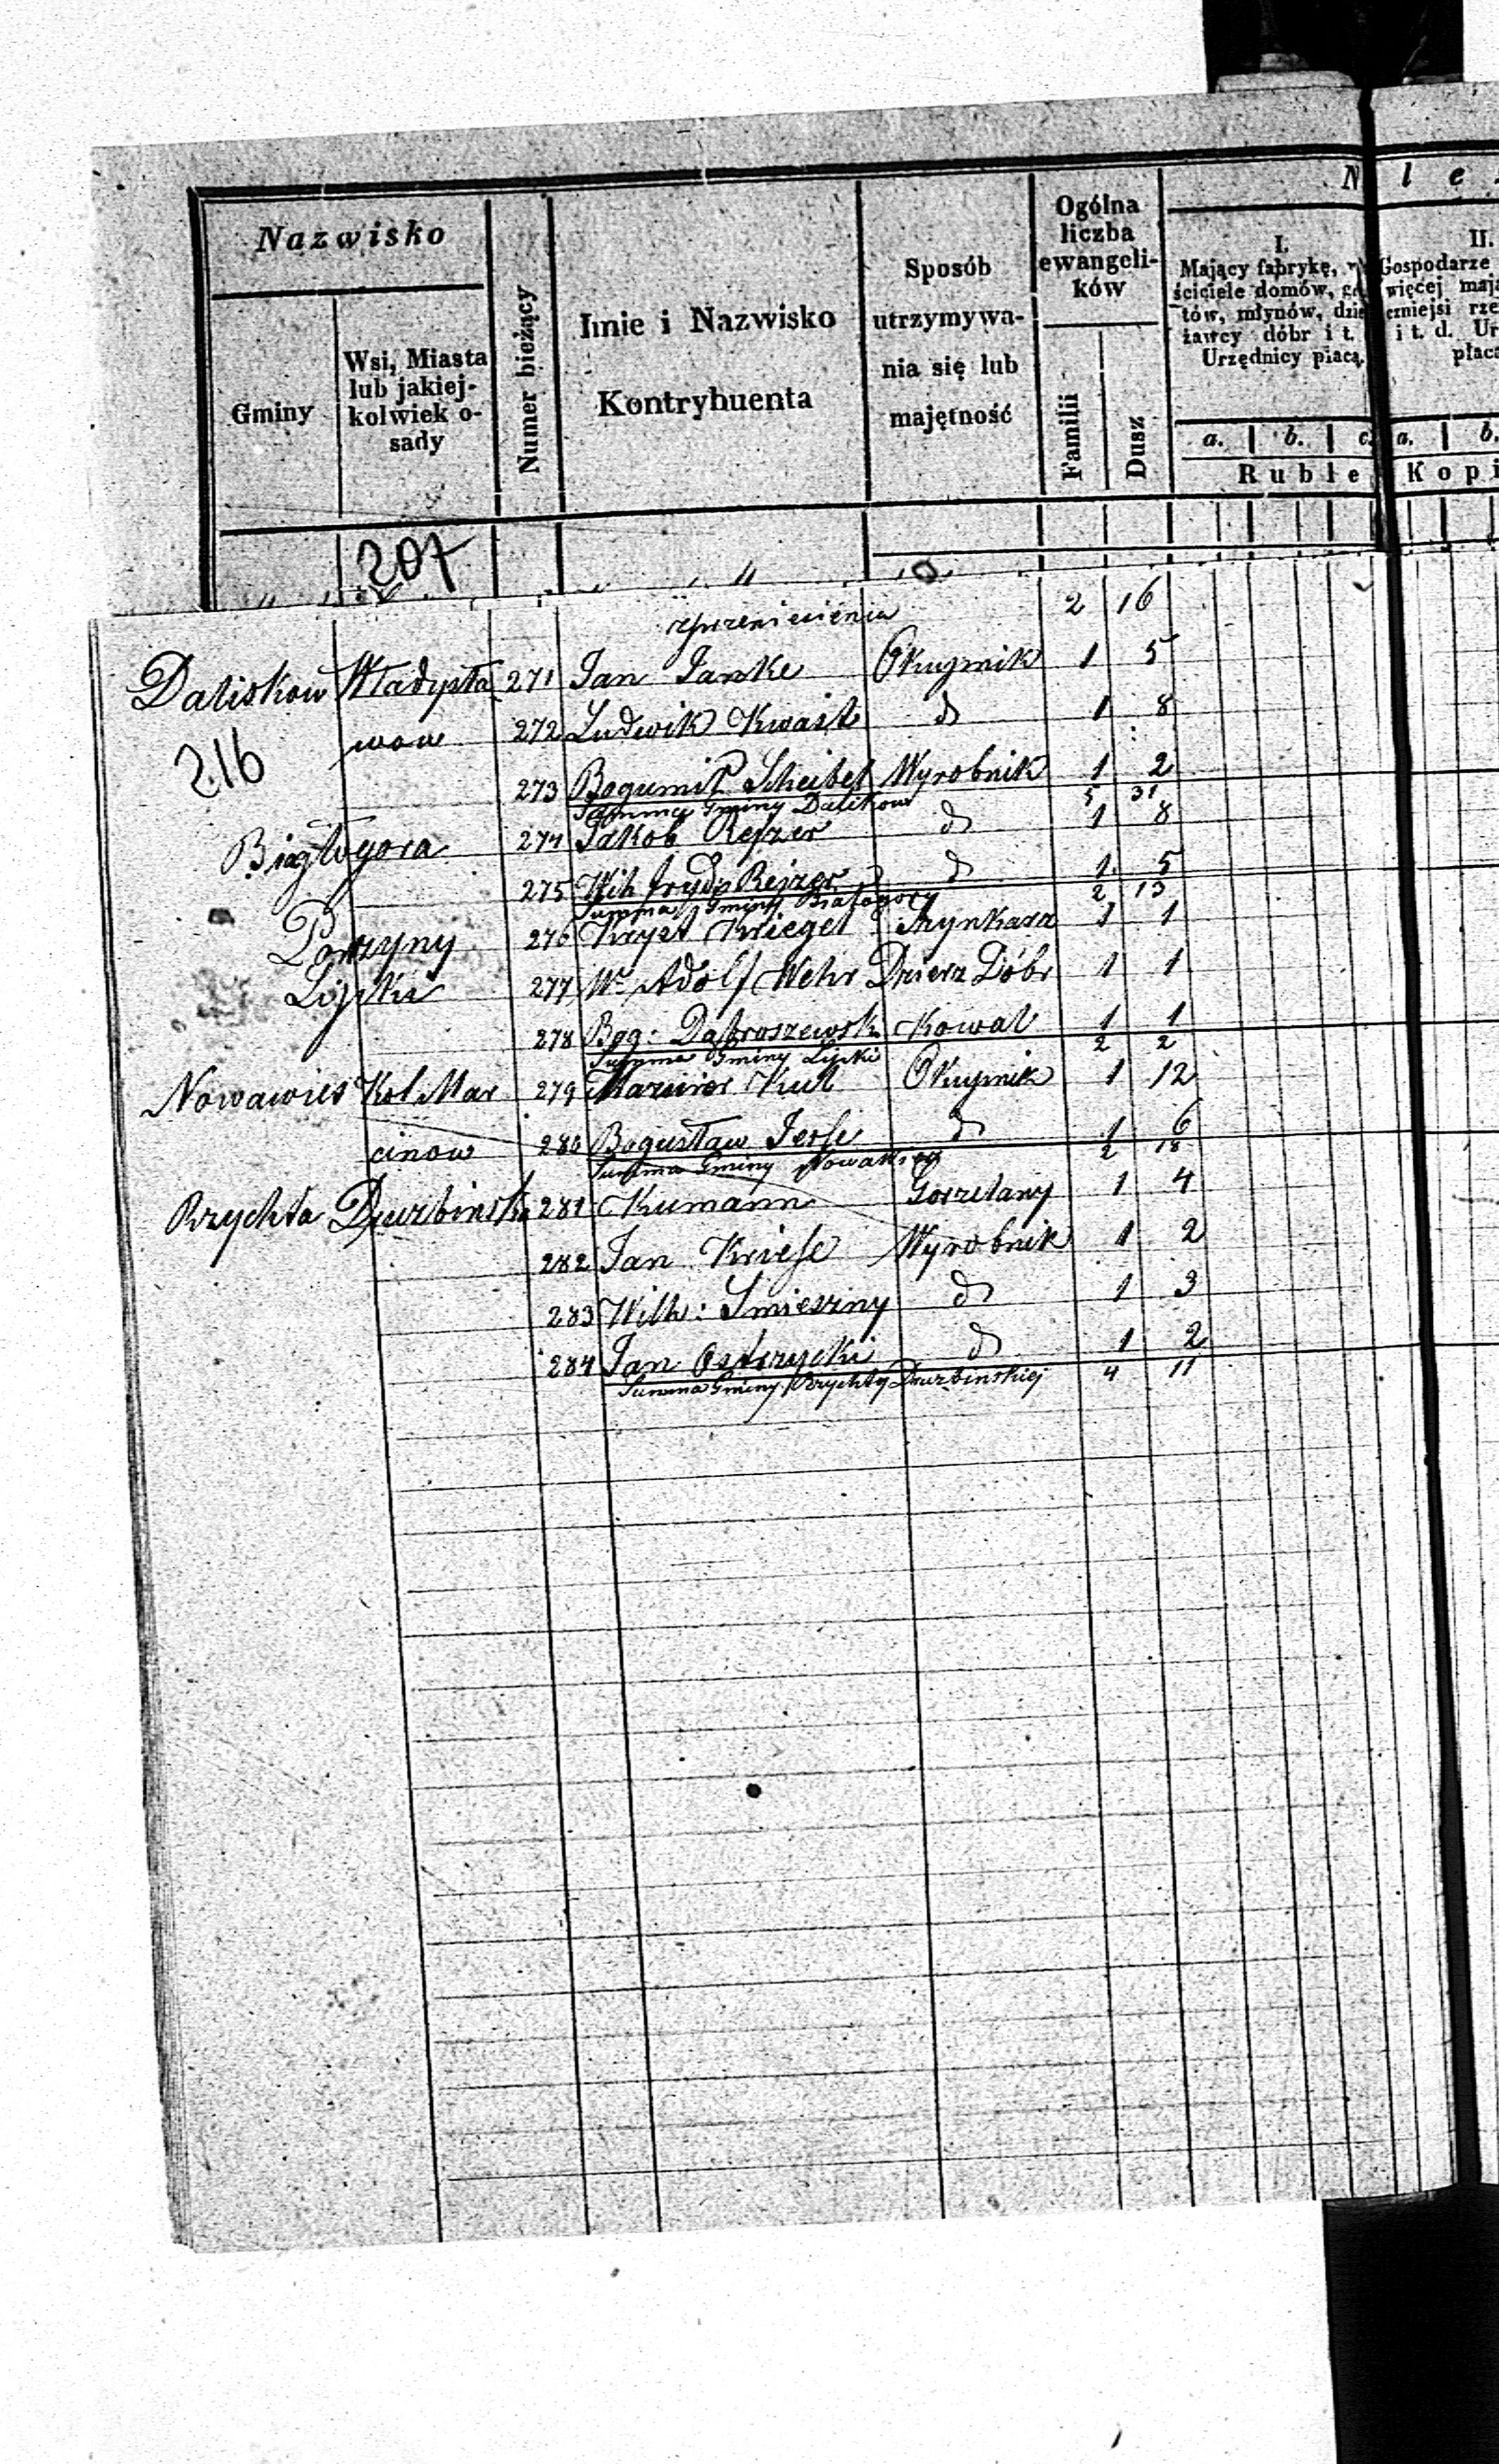 Nazwisko
Gminy
Wsi, Miasta
lub jakiej-
kolwiek o-
sady
Numer bieżący
Imie i Nazwisko
Kontrybuenta
Sposób
utrzymywa-
nia się lub
majętność
Ogólna
liczba
ewangeli-
ków
Familii
Dusz
N a l e
I.
Mający fabrykę,
ściciele domów,
tów, młynów, dzie
żawcy dóbr i t.
Urzędnicy płacą.
a. b. c.
Ruble
II.
Gospodarze
więcej mają
czniejsi rze
i t. d. Ur
płacą
a. b.
Kopi
207
z przeniesienia 2 16
Daliskow Władysła 271 Jan Janke Okupnik 1 5
wow 272 Ludwik Kwast d 1 8
216
273 Bogumił Scheibel Wyrobnik 1 2
Summa Gminy Dalikow 5 31
Białogora 274 Jakob Rejzer d 1 8
275 Wilh Fryd: Rejzer d 1 5
Summa Gminy Białogory 2 13
Porzyny 276 Kryst Kriegel Szynkarz 1 1
Lipki 277 W. Adolf Wehr Dzierz Dóbr 1 1
278 Bog: Dabroszewsk Kowal 1 1
Summa Gminy Lipki 2 2
Nowawies Kol Mar 279 Kul Okupnik 1 12
cinow 280 Bogusław Jesse d 1 6
Summa Gminy Nowawies 2 18
Przychta Druzbinska 281 Kumann Gorzelany 1 4
282 Jan Kriese Wyrobnik 1 2
283 Wilh: Smieszny d 1 3
284 Jan Ostrzycki d 1 2
Summa Gminy Przychty Druzbinskiej 4 11